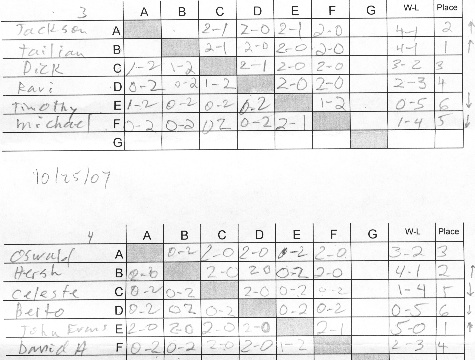 3 A B C D E F G W-L Place
Jackson A 2-1 2-0 2-1 2-0 4-1 2
Tailian B 2-1 2-0 2-0 2-0 4-1 1
Dick C 1-2 1-2 2-1 2-0 2-0 3-2 3
Ravi D 0-2 0-2 1-2 2-0 2-0 2-3 4
Timothy E 1-2 0-2 0-2 0-2 1-2 0-5 6
Michael F 0-2 0-2 02 0-2 2-1 1-4 5
G
10/25/07
4 A B C D E F G W-L Place
Oswald A 0-2 2-0 2-0 0-2 2-0 3-2 3
Hersh B 2-0 2-0 20 0-2 2-0 4-1 2
Celeste C 0-2 0-2 2-0 0-2 0-2 1-4 5
Berto D 0-2 02 0-2 0-2 0-2 0-5 6
John Evans E 2-0 20 2-0 2-0 2-1 5-0 1
David H F 0-2 0-2 2-0 2-0 1-2 2-3 4